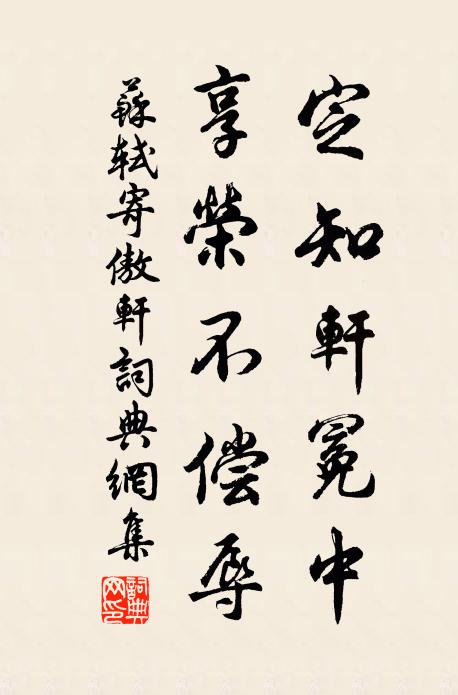 定知軒冕中
享榮不偿辱
蘇軾寄傲軒詞典網集
詞典网印